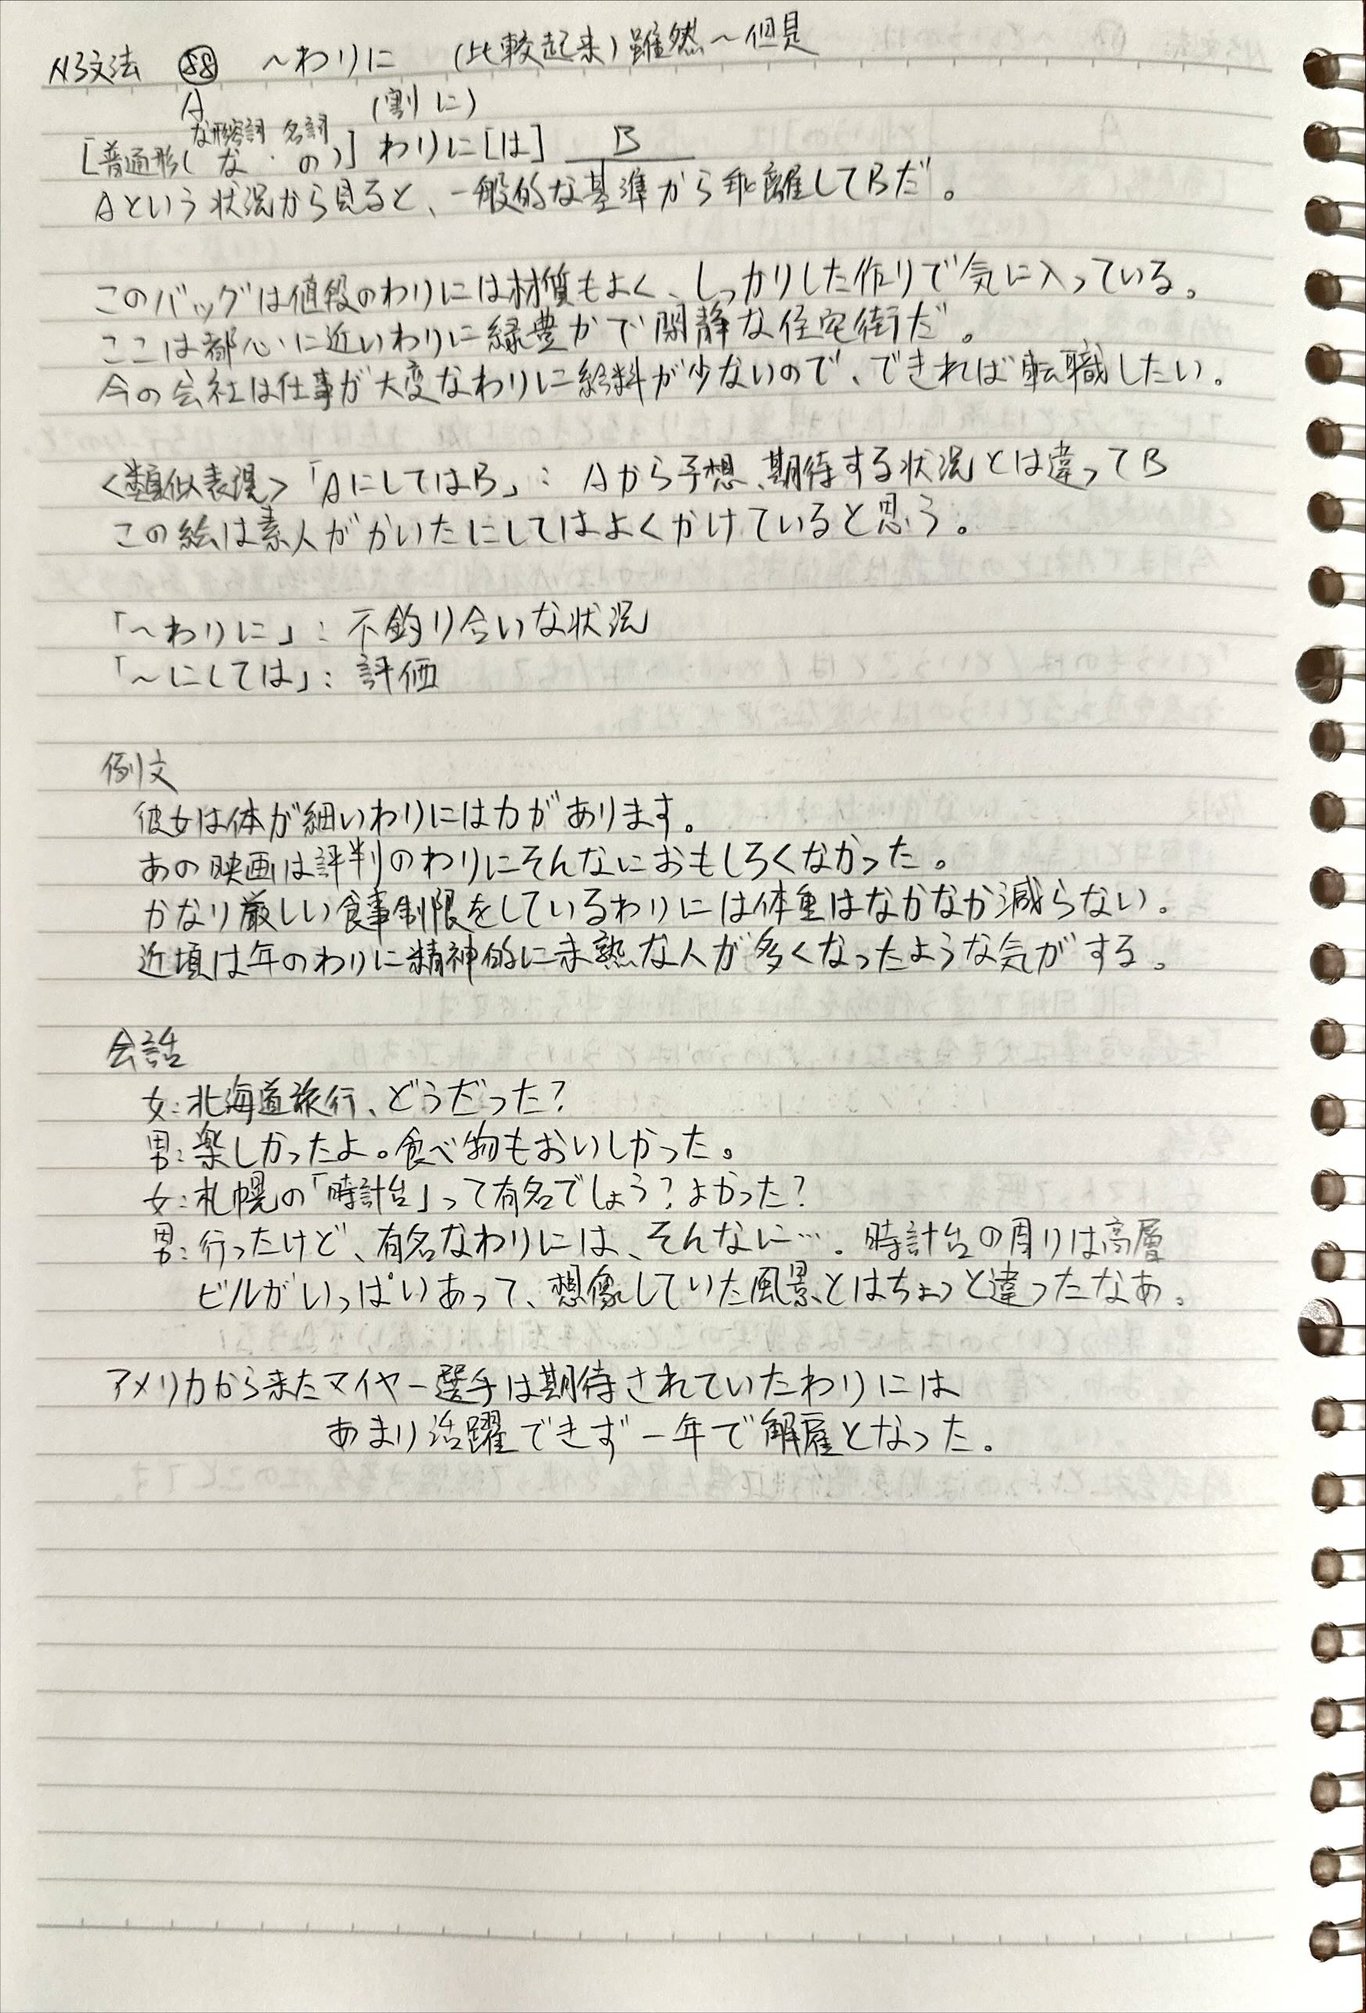 N3文法 88 ～わりに (比較起来)雖然～但是
A (割に)
な形容詞 名詞
[普通形(な・の)]わりに[は] B
Aという状況から見ると、一般的な基準から乖離してBだ。
このバッグは値段のわりには材質もよく、しっかりした作りで気に入っている。
ここは都心に近いわりに緑豊かで閑静な住宅街だ。
今の会社は仕事が大変なわりに給料が少ないので、できれば転職したい。
<類似表現>「AにしてはB」: Aから予想、期待する状況とは違ってB
この絵は素人がかいたにしてはよくかけていると思う。
「～わりに」: 不釣り合いな状況
「～にしては」: 評価
例文
彼女は体が細いわりには力があります。
あの映画は評判のわりにそんなにおもしろくなかった。
かなり厳しい食事制限をしているわりには体重はなかなか減らない。
近頃は年のわりに精神的に未熟な人が多くなったような気がする。
会話
女:北海道旅行、どうだった?
男:楽しかったよ。食べ物もおいしかった。
女:札幌の「時計台」って有名でしょう?よかった?
男:行ったけど、有名なわりには、そんなに…. 時計台の周りは高層
ビルがいっぱいあって、想像していた風景とはちょっと違ったなあ。
アメリカから来たマイヤー選手は期待されていたわりには
あまり活躍できず一年で解雇となった。